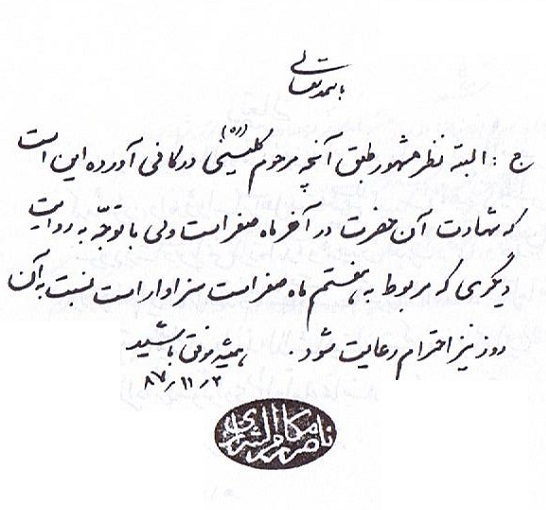 باسمه تعالی
ج: البته نظر مشهور طبق آنچه مرحوم کلینی (ره) در کافی آورده این است
که شهادت آن حضرت در آخر ماه صفر است ولی با توجّه به روایت
دیگری که مربوط به هفتم ماه صفر است سزاوار است نسبت به آن
روز نیز احترام رعایت شود. همیشه موفق باشید
۸۷/۱۱/۲
ناصر مکارم الشیرازی